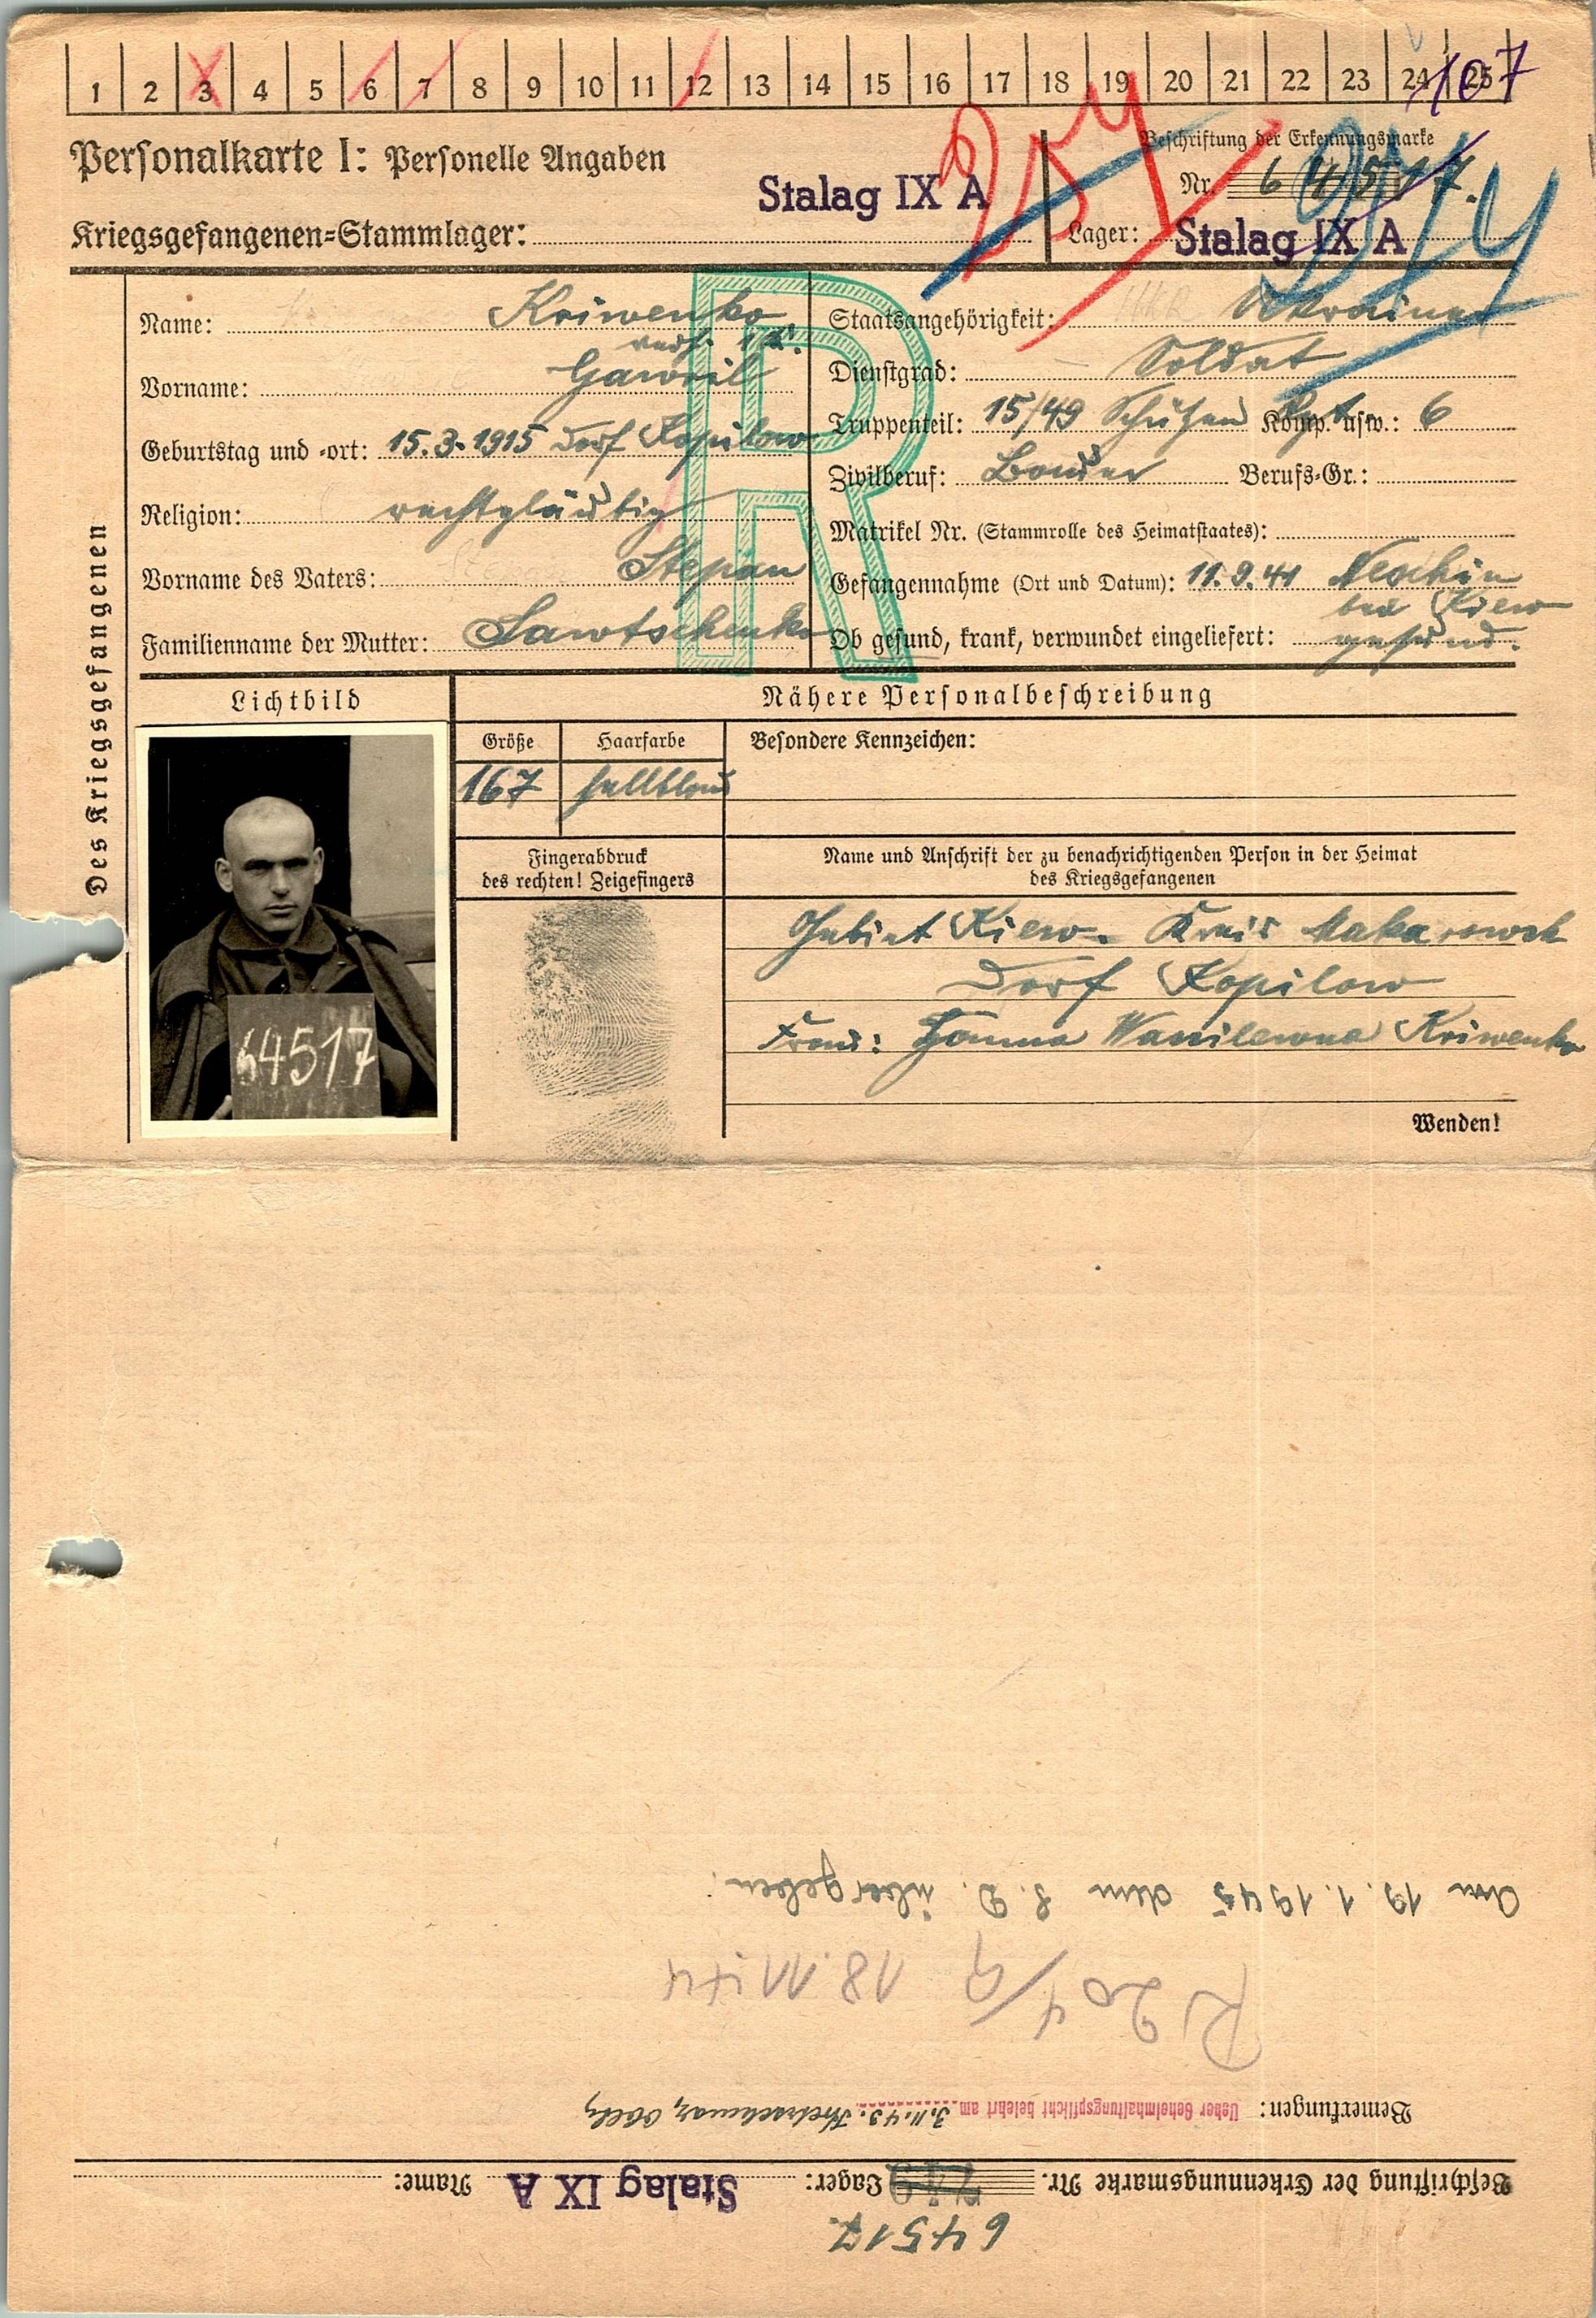 1 2 3 4 5 6 7 8 9 10 11 12 13 14 15 16 17 18 19 20 21 22 23 24 25
107
Personalkarte I: Personelle Angaben
Stalag IX A
Kriegsgefangenen=Stammlager:
Beschriftung der Erkennungsmarke
Nr. 64517.
Lager: Stalag IX A
Des Kriegsgefangenen
Name: Kriwenko
Vorname: Gawriil
Geburtstag und =ort: 15.3.1915 Dorf Kopilow
Religion: rechtgläubig
Vorname des Vaters: Stepan
Familienname der Mutter: Sawtschenko
R
Staatsangehörigkeit: Ukrainer
Dienstgrad: Soldat
Truppenteil: 15/49 Schützen Rgt. Komp. usw.: 6
Zivilberuf: Bauer Berufs=Gr.:
Matrikel Nr. (Stammrolle des Heimatstaates):
Gefangennahme (Ort und Datum): 11.9.41 Neschin
bei Kiew
Ob gesund, krank, verwundet eingeliefert: gesund.
Lichtbild
Nähere Personalbeschreibung
Größe Haarfarbe Besondere Kennzeichen:
167 hellblond
Fingerabdruck
des rechten! Zeigefingers
Name und Anschrift der zu benachrichtigenden Person in der Heimat
des Kriegsgefangenen
Gebiet Kiew. Kreis Makarowsk
Dorf Kopilow
Frau: Hanna Wassilewna Kriwenko
64517
Wenden!
64517.
Beschriftung der Erkennungsmarke Nr. Lager: Stalag IX A Name:
Bemerkungen: Ueber Geheimhaltungspflicht belehrt am 3.11.43.
R 204/9 18.11.44
Am 19.1.1945 dem S.D. übergeben.